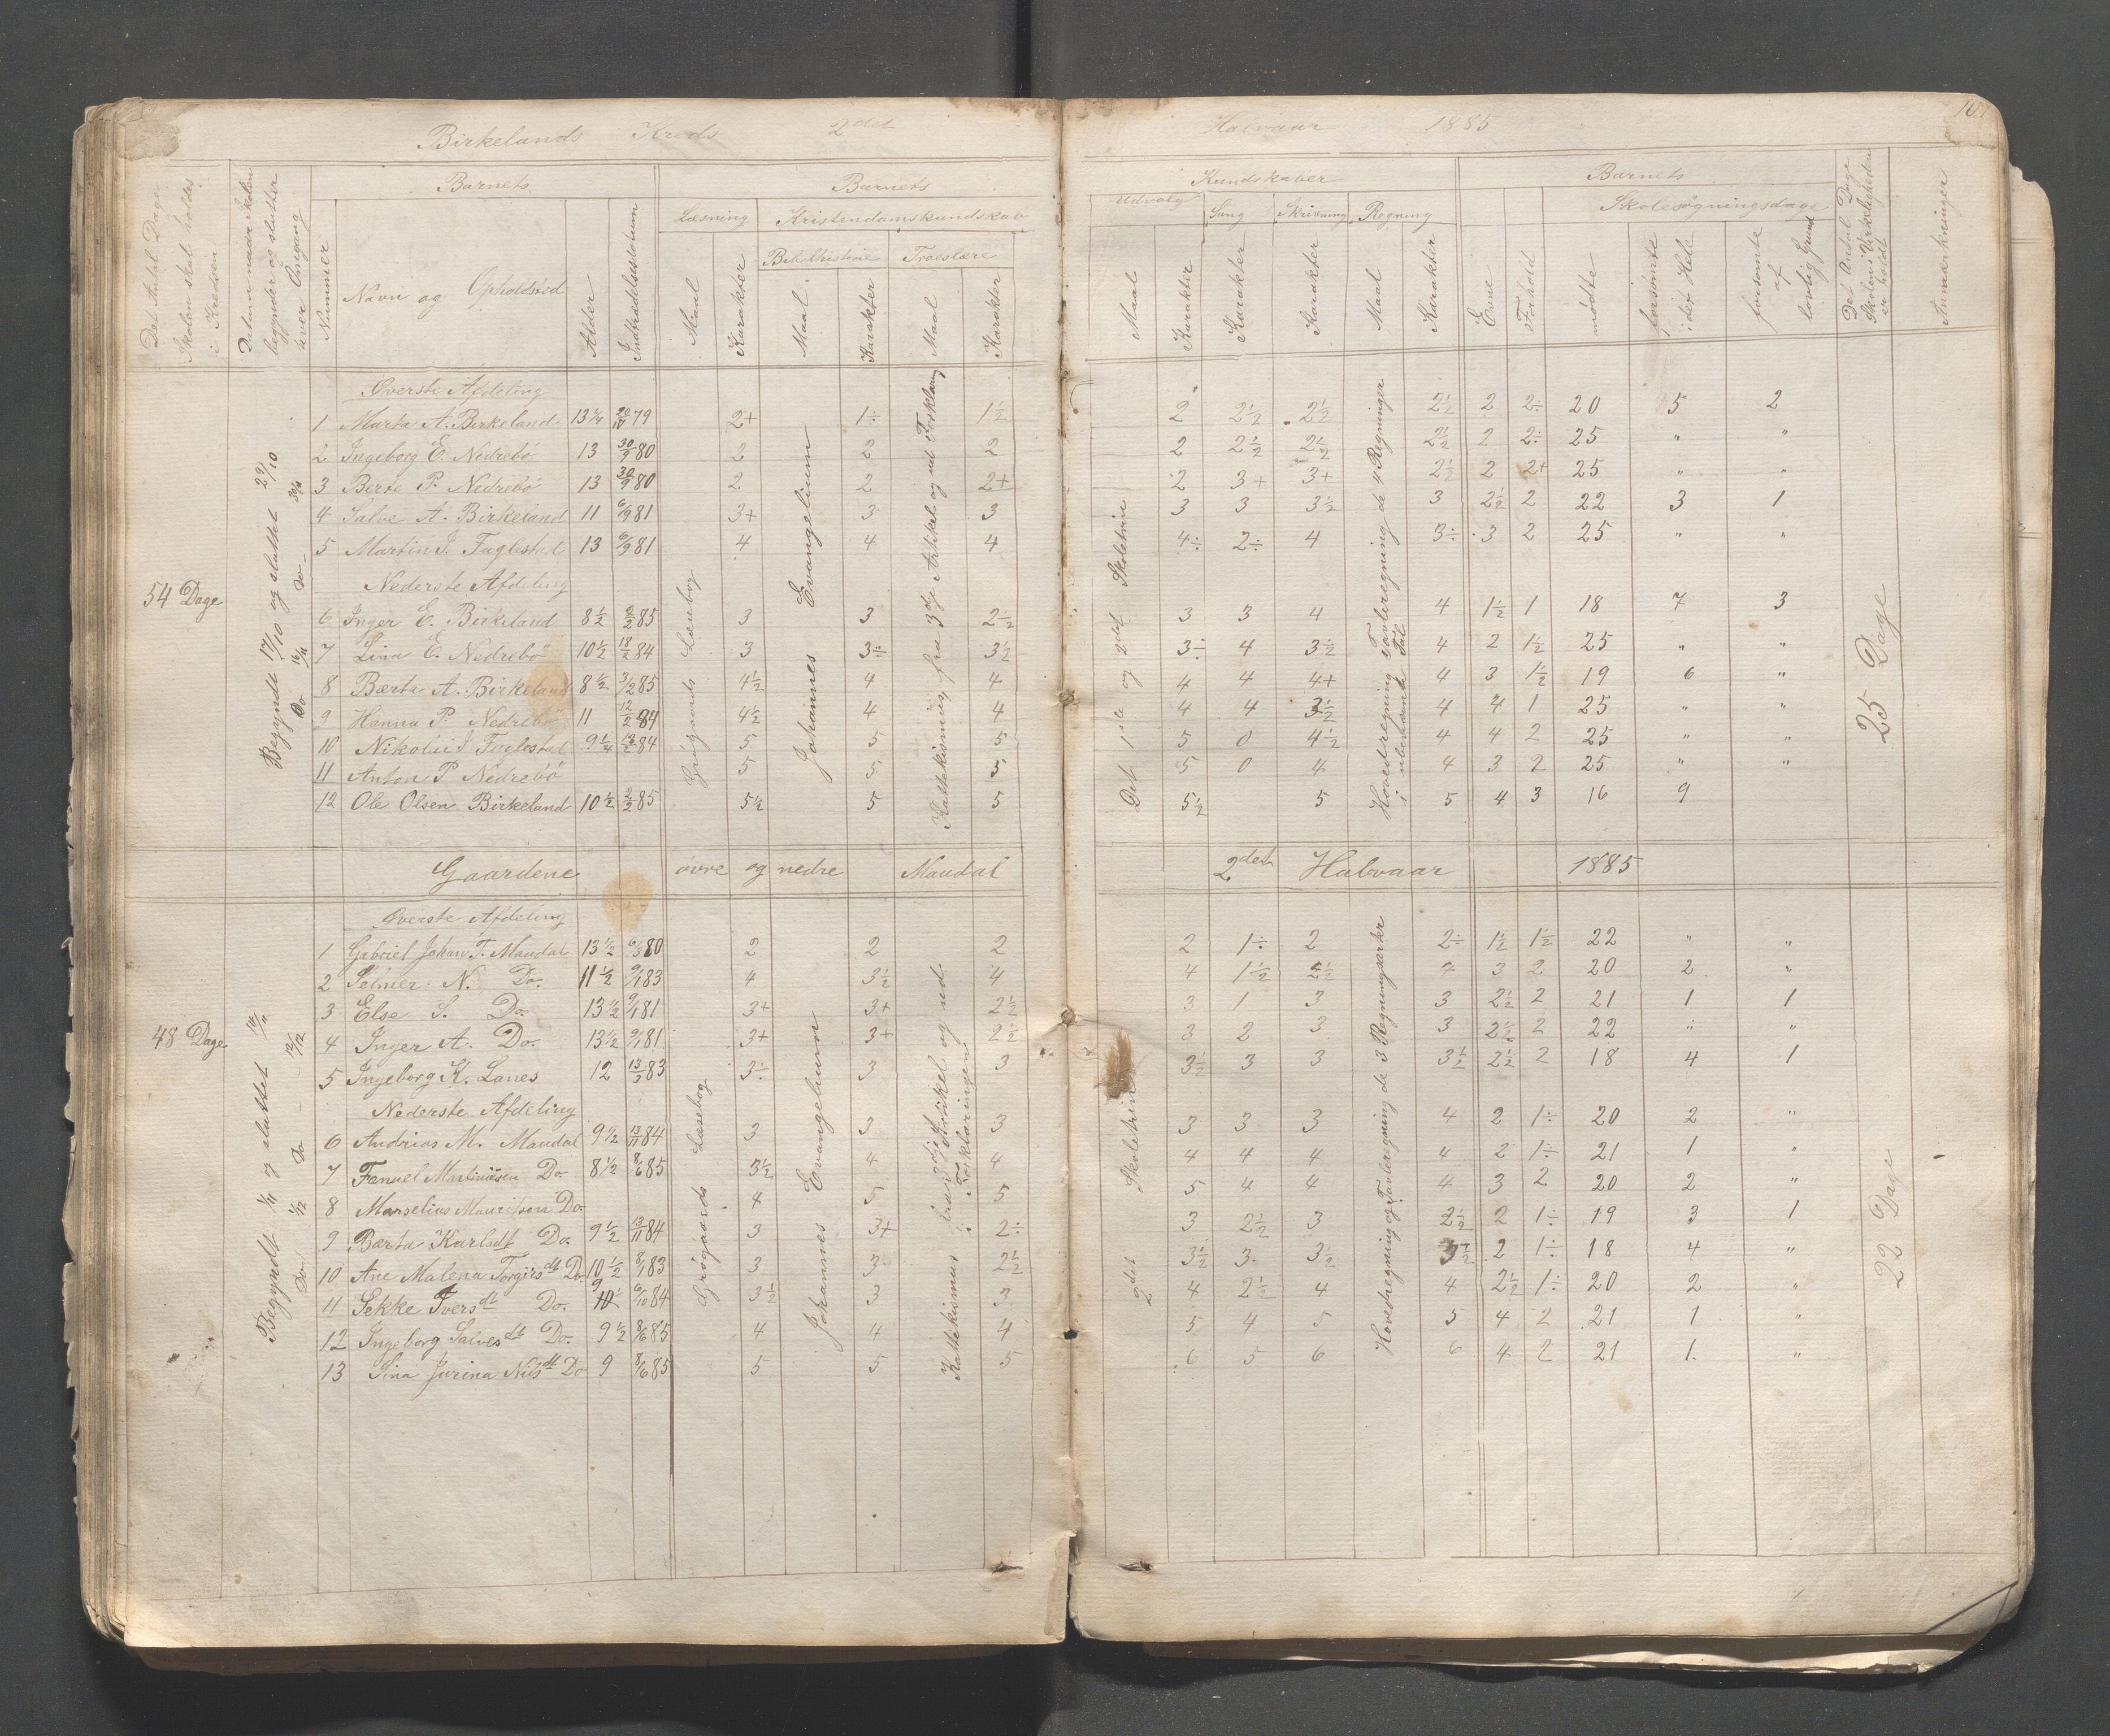 Birkelands Kreds 2det Halvaar 1885
Det Antal Dage Skolen skal holdes i Kredsen
Datum naar Skolen begynder og slutter hver Omgang
Barnets
Nummer
Navn og Opholdssted
Alder
Indtrædelsesdatum
Barnets Kundskaber
Læsning
Maal
Karakter
Kristendomskundskab
Bibelhistorie
Maal
Karakter
Troeslære
Maal
Karakter
Udvalg
Maal
Karakter
Sang
Karakter
Skrivning
Karakter
Regning
Maal
Karakter
Barnets
Evne
Forhold
Skolesøgningsdage
mødte
forsømte i det Hele
forsømte af lovlig Grund
Det Antal Dage Skolen i Virkeligheden er holdt
Anmærkninger
54 Dage
Begyndte 17/10 og sluttet 29/10
Do 16/11 Do 30/11
Grøgaards Læsebog
Johannes Evangelium
Katekismus, fra 3die Artikel og ud Forklaring
Det 1ste og 2det Skoletrin
Hovedregning Tavleregning de 4 Regninger
i ubenævnte Tal
25 Dage
Øverste Afdeling
1 Marta A. Birkeland 13 1/4 20/10 79 2+ 1÷ 1½ 2 2½ 2½ 2½ 2 2÷ 20 5 2
2 Ingeborg E. Nedrebö 13 30/9 80 2 2 2 2 2½ 2½ 2½ 2 2÷ 25 " "
3 Berte P. Nedrebö 13 30/9 80 2 2 2+ 2 3+ 3+ 2½ 2 2+ 25 " "
4 Salve A. Birkeland 11 6/9 81 3+ 3 3 3 3 3½ 3 2½ 2 22 3 1
5 Martin J. Fuglestad 13 6/9 81 4 4 4 4÷ 2÷ 4 3÷ 3 2 25 " "
Nederste Afdeling
6 Inger E. Birkeland 8½ 2/2 85 3 3 2½ 3 3 4 4 1½ 1 18 7 3
7 Lina E. Nedrebö 10½ 18/2 84 3 3÷ 3½ 3÷ 4 3½ 4 2 1½ 25 " "
8 Bærta A. Birkeland 8½ 3/2 85 4½ 4 4 4 4 4+ 4 3 1½ 19 6 "
9 Hanna P. Nedrebö 11 12/2 84 4½ 4 4 4 4 3½ 4 4 1 25 " "
10 Nikolai J Fuglestad 9 1/4 12/2 84 5 5 5 5 0 4½ 4 4 2 25 " "
11 Anton P Nedrebö 5 5 5 5 0 4 4 3 2 25 " "
12 Ole Olsen Birkeland 10½ 2/2 85 5½ 5 5 5½ 5 5 4 3 16 9
Gaardene øvre og nedre Maudal 2det Halvaar 1885
48 Dage
Begyndt 1/11 og sluttet 14/11
Do 1/12 Do 12/12
Grøgaards Læsebog
Johannes Evangelium
Katekismus fra 3die Artikel og ud
Forklaringen
2det Skoletrin
Hovedregning og Tavleregning de 3 Regningsarter
22 Dage
Øverste Afdeling
1 Gabriel Johan T. Maudal 13½ 6/3 80 2 2 2 2 1÷ 2 2÷ 1½ 1½ 22 " "
2 Selmer N. Do. 11½ 9/1 83 4 3½ 4 4 1½ 2½ 4 3 2 20 2 "
3 Else S. Do. 13½ 9/1 81 3+ 3+ 2½ 3 1 3 3 2½ 2 21 1 1
4 Inger A. Do. 13½ 9/1 81 3+ 3+ 2½ 3 2 3 3 2½ 2 22 " "
5 Ingeborg K. Lanes 12 13/3 83 3÷ 3 3 3½ 3 3 3½ 2½ 2 18 4 1
Nederste Afdeling
6 Andrias M. Maudal 9½ 13/11 84 3 3 3 3 3 3 4 2 1÷ 20 2 "
7 Fanuel Martinusen Do. 8½ 8/6 85 3½ 4 4 4 4 4 4 2 1÷ 21 1 "
8 Marselius Mauritsen Do. 4 5 5 5 4 4 4 3 2 20 2 "
9 Bærta Karlsdt Do. 9½ 13/11 84 3 3+ 2÷ 3 2½ 3 2½ 2 1÷ 19 3 1
10 Ane Malena Torgirsdt Do. 10½ 8/1 83 3 3 2½ 3½ 3 3½ 3½ 2 1÷ 18 4 "
11 Sekke Iversdt Do. 9 6/10 84 3½ 3 3 4 2½ 4 4 2½ 1÷ 20 2 "
12 Ingeborg Salvesdt Do. 9½ 8/6 85 4 4 4 5 4 5 5 4 2 21 1 "
13 Sina Jurina Nilsdt Do 9 8/6 85 5 5 5 6 5 6 6 4 2 21 1. "